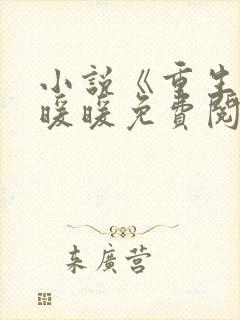 小说《重生
暖暖免費閱
来廣营